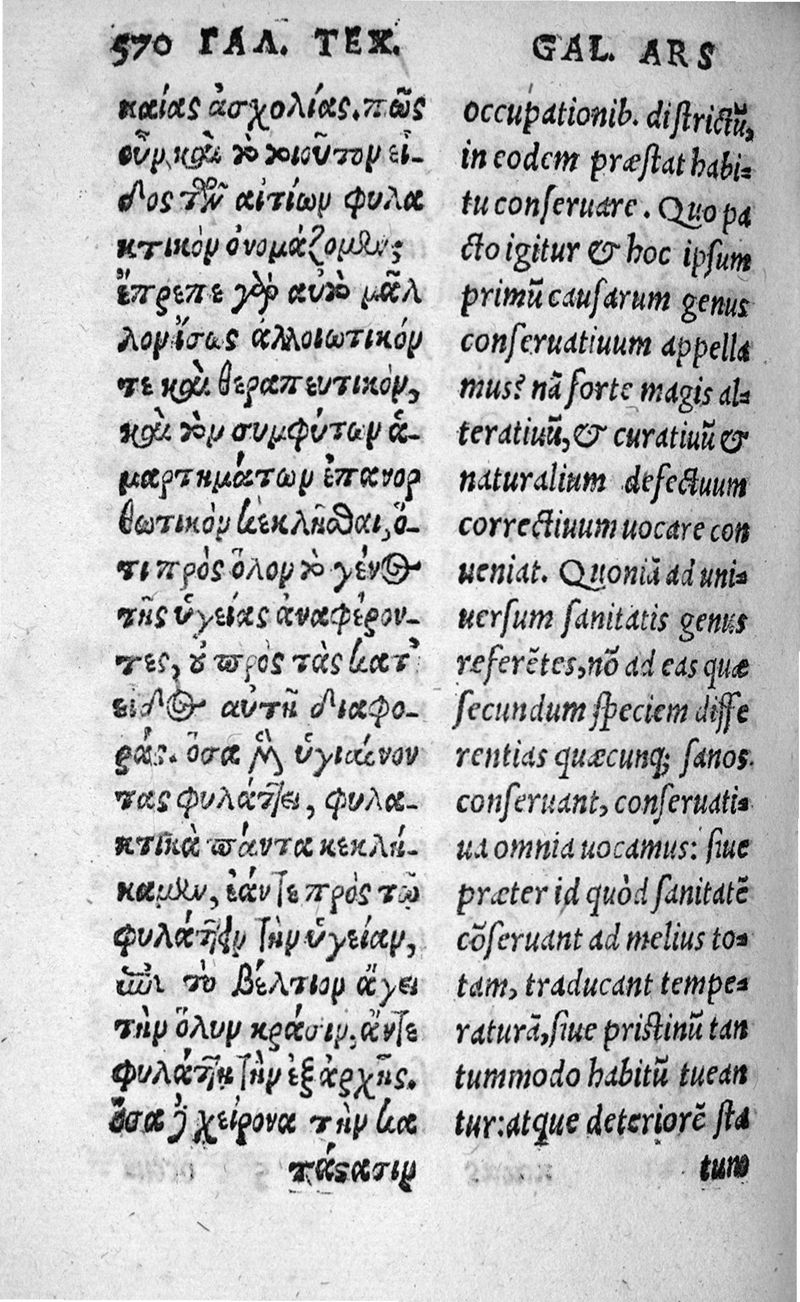 570 ΓΑΛ. ΤΕΧ.
καίας ἀσχολίας. πῶς
οὖν καὶ τὸ τοιοῦτον εἶ-
δος τῶν αἰτίων φυλα
κτικὸν ὀνομάζομεν;
ἔπρεπε γὰρ αὐτὸ μᾶλ
λον ἴσως ἀλλοιωτικόν
τε καὶ θεραπευτικὸν,
καὶ τὸν συμφύτων ἁ-
μαρτημάτων ἐπανορ
θωτικὸν κεκλῆσθαι, ὅ-
τι πρὸς ὅλον τὸ γένος
τῆς ὑγείας ἀναφέρον-
τες, οὐ πρὸς τὰς κατ'
εἶδος αὐτῆ διαφο-
ράς. ὅσα μὲν ὑγιαίνον
τας φυλάττει, φυλα-
κτικὰ πάντα κεκλή-
καμεν, ἐάντε πρὸς τῶ
φυλάττειν τὴν ὑγείαν,
ἐπὶ τὸ βέλτιον ἄγει
τὴν ὅλην κρᾶσιν, ἄντε
φυλάττῃ τὴν ἐξ ἀρχῆς.
ὅσα δὲ χείρονα τὴν κα
τάστασιν
GAL. ARS
occupationib. districtū,
in eodem præstat habi-
tu conseruare. Quo pa
cto igitur & hoc ipsum
primū causarum genus
conseruatiuum appella
mus? nā forte magis al-
teratiuū, & curatiuū &
naturalium defectuum
correctiuum uocare con
ueniat. Quoniā ad uni-
uersum sanitatis genus
referētes, nō ad eas quæ
secundum speciem diffe
rentias quæcunq; sanos
conseruant, conseruati-
ua omnia uocamus: siue
præter id quòd sanitatē
cōseruant ad melius to-
tam, traducant tempe-
raturā, siue pristinū tan
tummodo habitū tuean
tur: atque deteriorē sta
tum